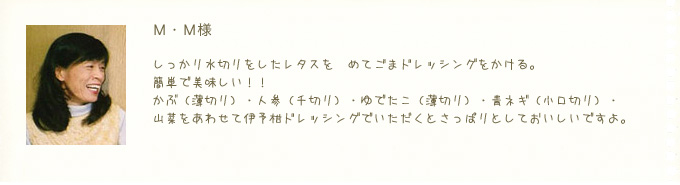 M・M様
しっかり水切りをしたレタスを　めてごまドレッシングをかける。
簡単で美味しい！！
かぶ（薄切り）・人参（千切り）・ゆでたこ（薄切り）・青ネギ（小口切り）・
山菜をあわせて伊予柑ドレッシングでいただくとさっぱりとしておいしいですよ。